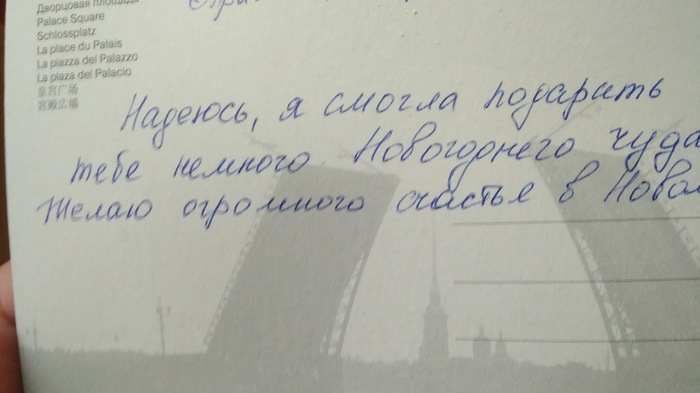 Дворцовая площадь
Palace Square
Schlossplatz
La place du Palais
La piazza del Palazzo
La plaza del Palacio
皇宫广场
宮殿広場
Надеюсь, я смогла подарить
тебе немного Новогоднего чуда
Желаю огромного счастья в Новом